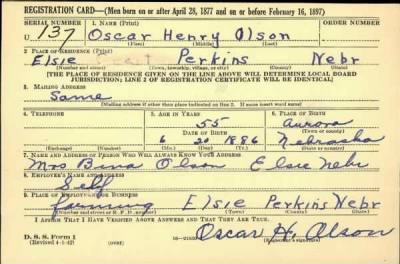 REGISTRATION CARD—(Men born on or after April 28, 1877 and on or before February 16, 1897)
SERIAL NUMBER 1. NAME (Print)
U 137 Oscar Henry Olson
(First) (Middle) (Last)
2. PLACE OF RESIDENCE (Print)
Elsie Perkins Nebr
(Number and street) (Town, township, village, or city) (County) (State)
[THE PLACE OF RESIDENCE GIVEN ON THE LINE ABOVE WILL DETERMINE LOCAL BOARD
JURISDICTION; LINE 2 OF REGISTRATION CERTIFICATE WILL BE IDENTICAL]
3. MAILING ADDRESS
Same
[Mailing address if other than place indicated on line 2. If same insert word same]
4. TELEPHONE 5. AGE IN YEARS 6. PLACE OF BIRTH
55 Aurora
DATE OF BIRTH (Town or county)
6 20 1886 Nebraska
(Exchange) (Number) (Mo.) (Day) (Yr.) (State or country)
7. NAME AND ADDRESS OF PERSON WHO WILL ALWAYS KNOW YOUR ADDRESS
Mrs Bina Olson Elsie Nebr
8. EMPLOYER'S NAME AND ADDRESS
Self
9. PLACE OF EMPLOYMENT OR BUSINESS
farming Elsie Perkins Nebr
(Number and street or R. F. D. number) (Town) (County) (State)
I AFFIRM THAT I HAVE VERIFIED ABOVE ANSWERS AND THAT THEY ARE TRUE.
D. S. S. Form 1
(Revised 4-1-42) (over) Oscar H. Olson
(Registrant's signature)